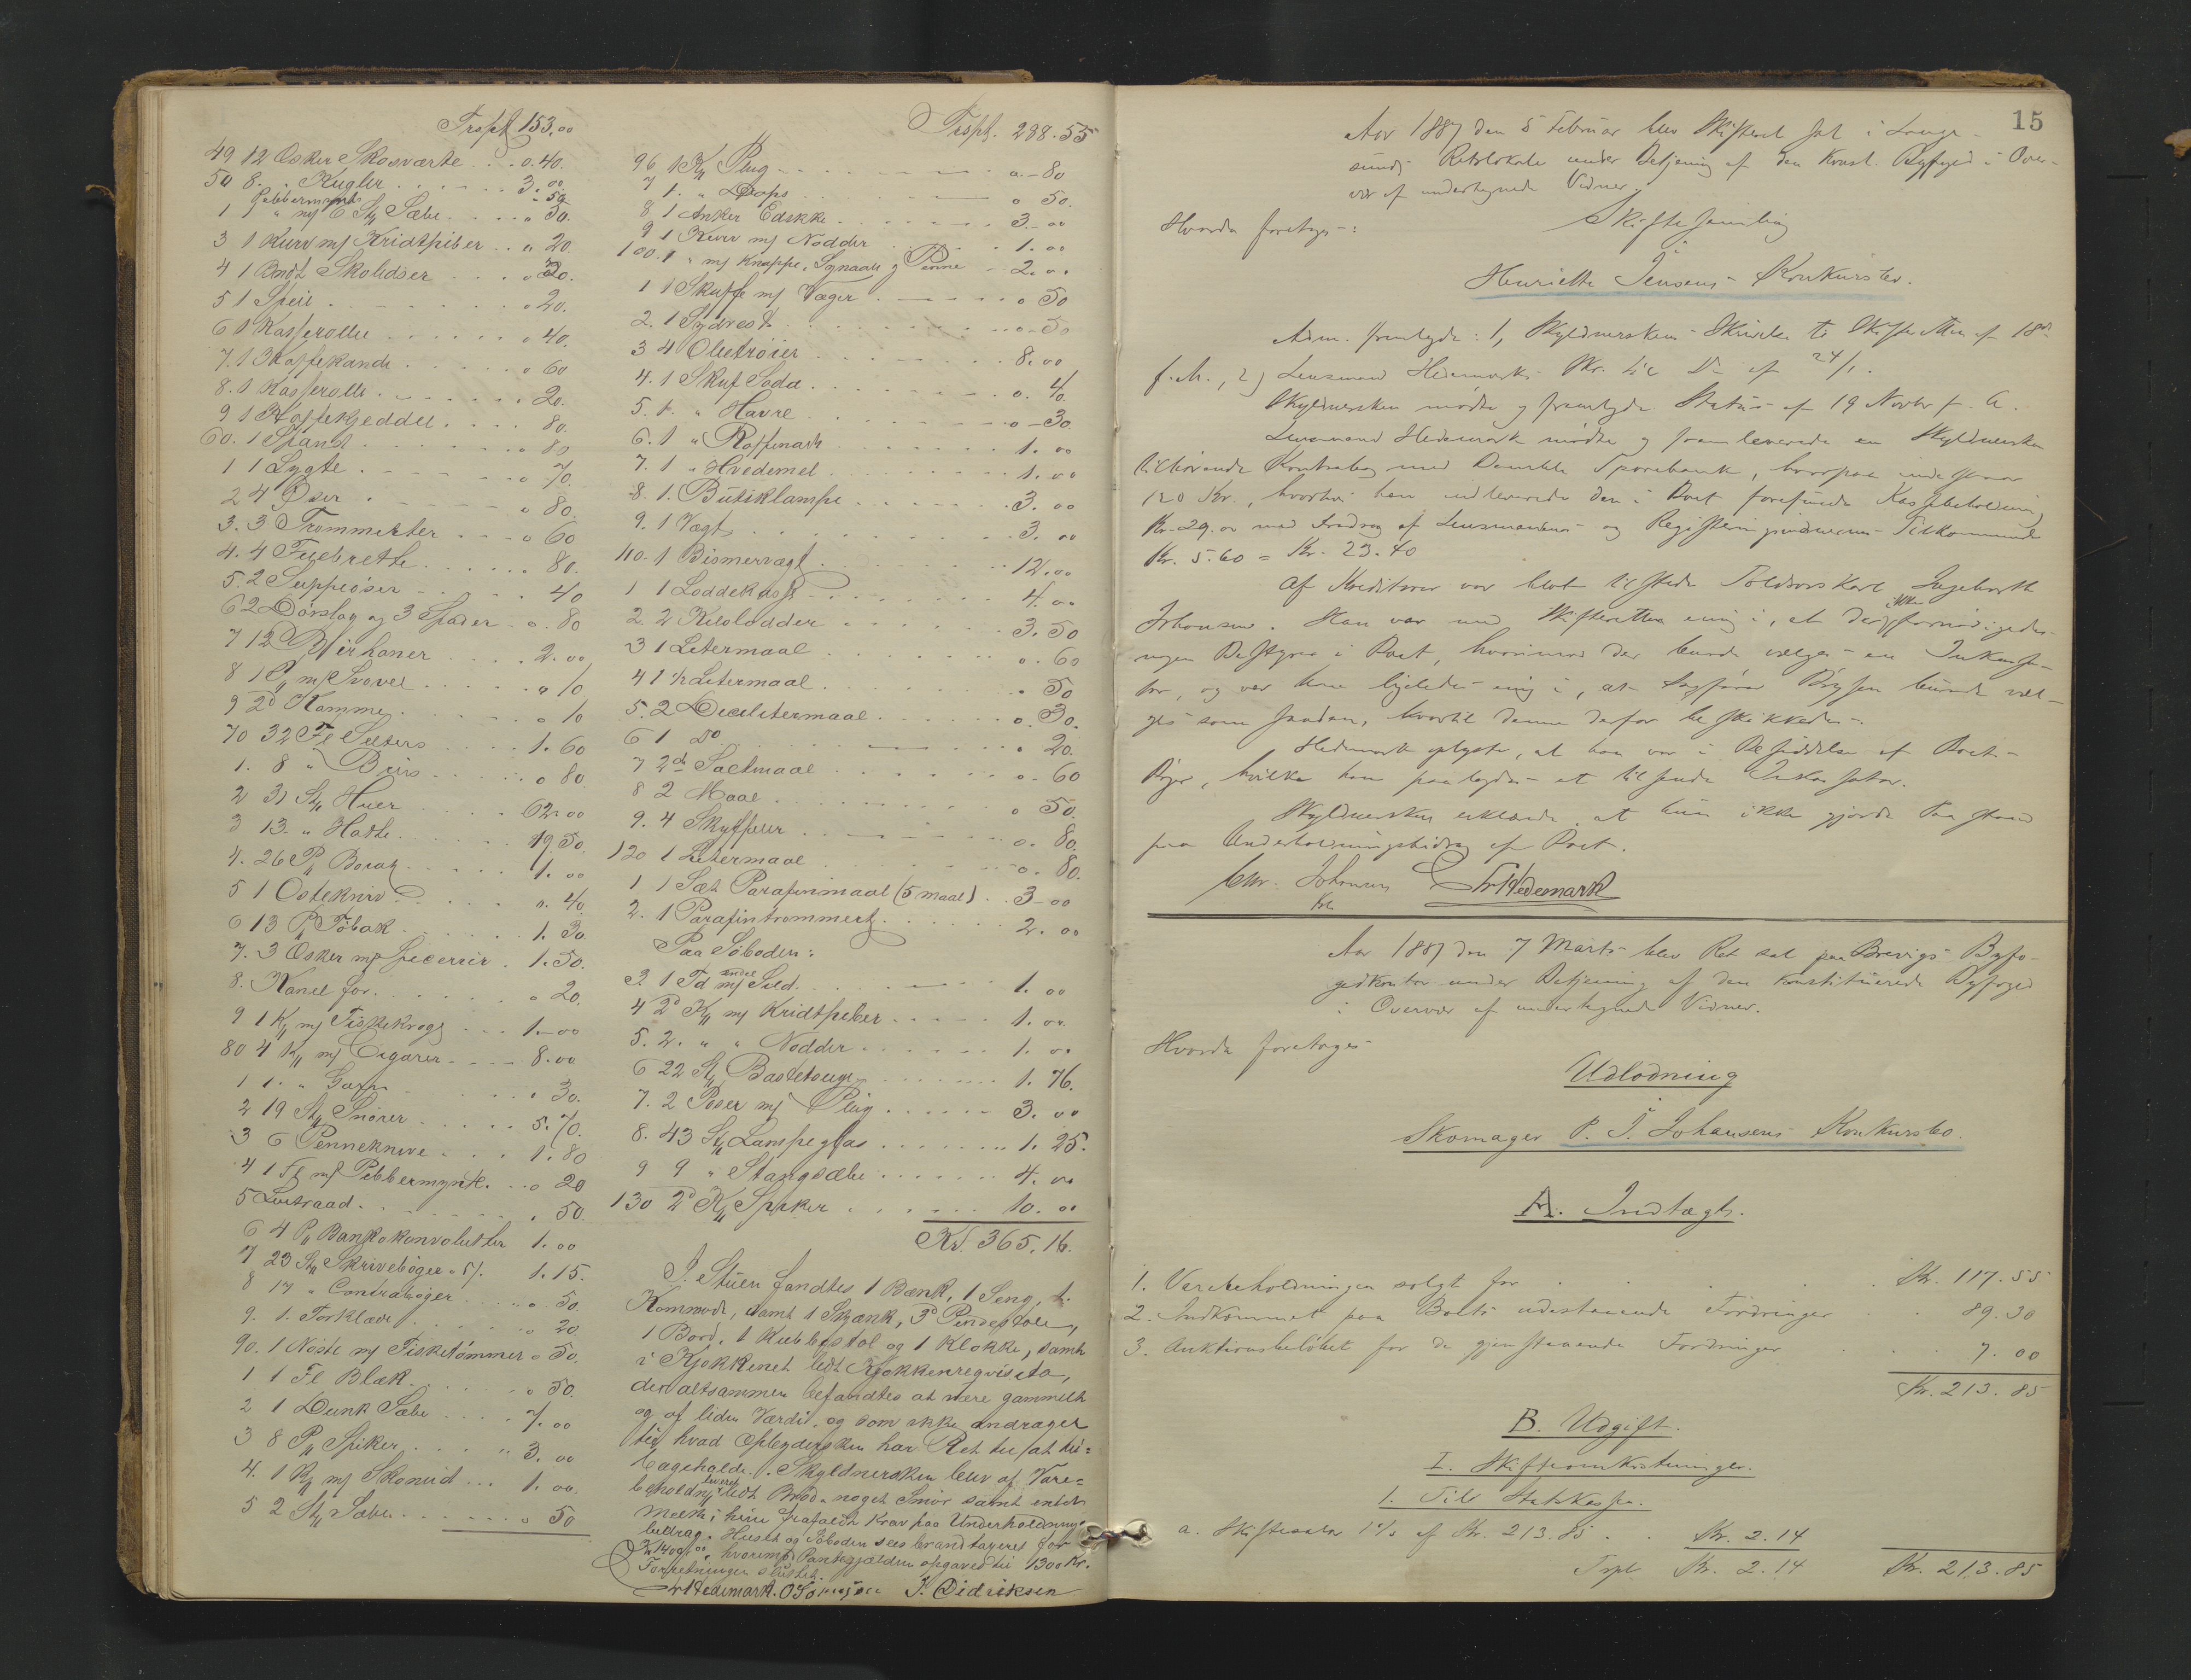 Trspt 153.00
49 12 Æsker Skosværte . . 0.40.
50 8. " Kugler . . . 3.00
Pebbermynte " 50
1 " m/ 6 St. Sæbe . . . " 50.
3 1 Kurv m/ Kridtpiber . . " 20.
4 1 Bndt Skolidser . . . " 20.
5 1 Speil . . . " 20.
6 1 Kasserolle . . . " 40.
7. 1 Kaffekande . . . " 60
8. 1 Kasserolle . . . 20.
9 1 Kaffekjeddel . . . 80.
60. 1 Spand . . . " 80
1 1 Lygte . . . " 70.
2 4 Øser . . . " 80.
3. 3 Trommerter . . . " 60
4. 4 Fuebrette . . . 80.
5. 2 Suppeøser . . . 40
6 2 Dørslag og 3 Spader . " 80
7 12 Pibirhaner . . . 2.00
8 1 P m/ Svovel . . . " 10
9 2 d Kamme . . . " 10
70 32 Fl Selters . . . 1.60
1. 8 " Brus . . . " 80
2 31 St Huer . . . 62.00
3 13. " Hatte . . . 19.50.
4. 26 P Borax . . . 1.00
5 1 Ostekniv . . . " 40
6 13 P Tobak . . . 1.30.
7. 3 Æsker m/ Specerier . 1.50.
8. Kanel for . . . " 20.
9 1 K m/ Fiskekroge . . . 1.00
80 4 K m/ Cigarer . . . 8.00
1 1. " Garn . . . " 30.
2 19 St Snører . . . 5.70.
3 6 Penneknive . . . 1.80
4 1 Fl m/ Pebbermynte . . " 20
5 Lustraad . . . " 50.
6 4 P Bankokonvolutter 1.00
7 23 St Skrivebøger . 1.15.
8 17 " Contrabøger . . . " 50.
9. 1. Forklæde . . . " 20
90. 1 Nøste m/ Fisketømmer " 50.
1 1 Fl Blæk . . . " 50.
2 1 Dunk Sæbe . . . 7.00
3 8 P Spiker . . . 3.00
4. 1 K m/ Skonud . . . 1.00.
5 2 St Sæbe . . . " 50
Trspt. 238.55
96 1 K Plug . . . 0.80
7 1. " Drops . . . " 50.
8 1 Anker Edikke . . . 3.00
9 1 Kurv m/ Nødder . . . 1.00
100. 1 " m/ Knappe, Synaale og Penne - 2.00
1 1 Skuffe m/ Væger . . . " 50
2. 1 Sydvest . . . " 50
3 4 Olietrøier . . . 8.00
4. 1 Skuf Soda . . . 0.40.
5. 1. " Havre . . . " 30
6. 1 " Raffinade . . . 1.00
7. 1 " Hvedemel . . . 1.00
8. 1. Butiklampe . . . 3.00
9. 1 Vægt . . . 3.00
110. 1 Bismervægt . . . 12.00
1 1 Loddekasse . . . 4.00
2. 2 Kilolodder . . . 3.50
3 1 Litermaal . . . 0.60
4 1 1/2 Litermaal . . . " 50
5. 2 Decilitermaal . . . 0.30.
6 1 do . . . " 20.
7 2 d Saltmaal . . . " 60
8 2 Maal . . . " 50.
9. 4 Skyffeler . . . 0.80.
120 1 Litermaal . . . 0.80.
1 1 Sæt Parafinmaal (5 maal) . . 3.00
2. 1 Parafintrommert . . . 2.00
Paa Søboden:
3. 1 Td m/ endel Sild . . . 1.00
4 2 d K m/ Kridtpiber . . . 1.00.
5. 2. " " Nødder . . . 1.00
6 22 St Bastetouge . . . 1.76.
7. 2 Poser m/ Plug . . . 3.00
8. 43 St Lampeglas . . . 1.25.
9 9 " Stangsæbe . . . 4.00
130 2 d K Spiker . . . 10.00
Kr. 365.16.
I Stuen fandtes 1 Bænk, 1 Seng, 1
Kommode, samt 1 Skænk, 3 d Pindestole,
1 Bord, 1 Kubbestol og 1 Klokke, samt
i Kjøkkenet lidt Kjøkkenreqvisita,
der altsammen befandtes at være gammelt
og af liden Værdi, og som ikke andrager
til hvad Oplydersken har Ret til at til=
bageholde. Skyldnersken blev af Vare=
beholdn. leveret lidt Brød, noget Smør samt endel
Melk; hun frafaldt Krav paa Underholdnings
bidrag. Huset og Søboden sees brandtaxeret for
Kr 1400.00, hvorimod Pantegjælden opgaves til 1300 Kr.
Forretningen sluttet.
Hedemark. O Tomasjere J. Didriksen
15
Aar 1887 den 5 Februar blev Skifteret sat i Lange-
sunds Retslokale under Betjening af den konst. Byfoged i Over-
vær af undertegnede Vidner.
Hvorda foretoges:
Skiftesamling
i
Henriette Jensens Konkursbo.
Adm. fremlagde: 1, Skyldnerskens Skrivelse til Skifteretten af 18de
f. M., 2) Lensmand Hedemarks Skr. til Do af 24/1.
Skyldnersken mødte og fremlagde Status af 19 Novbr f. A.
Lensmand Hedemark mødte og fremleverede en Skyldnersken
tilhørende Kontrabog med Bamble Sparebank, hvorpaa indestaar
120 Kr., hvorhos han indleverede den i Boet forefundne Kassebeholdning
Kr. 29.00 med Fradrag af Lensmandens og Registeringsvidnernes Tilkommende
Kr. 5.60 = Kr. 23.40
Af Kreditorer var blot tilstede Toldoverskarl Ingebreth
Johansen. Han var med Skifteretten enig i, at der ikke fornødigedes
nogen Bestyrer i Boet, hvorimod der burde vælges en Inkassa-
tor, og var han ligeledes enig i, at Sagfører Brysen burde væl-
ges som saadan, hvortil denne derfor beskikkedes.
Hedemark oplyste, at han var i Besiddelse af Boets
Bøger, hvilke han paalagdes at tilsende Inkassator.
Skyldnersken erklærede, at hun ikke gjorde Paastand
paa Underholdningsbidrag af Boet.
Chr. Johansen Hedemark
Aar 1887 den 7 Marts blev Ret sat paa Brevigs Byfo-
gedkontor under Betjening af den konstituerede Byfoged
i Overvær af undertegnede Vidner.
Hvorda foretoges
Udlodning
i
Skomager P. J. Johansens Konkursbo.
A. Indtægt.
1. Varebeholdningen solgt for . . . Kr. 117.55
2. Indkommet paa Boets udestaaende Fordringer . . 89.30
3. Auktionsbeløbet for de gjenstaaende Fordringer . . 7.00
Kr. 213.85
B. Udgift.
I. Skifteomkostninger.
1. Til Statskassen.
a. Skiftesalær 1% af Kr. 213.85 . . Kr. 2.14
Trpt Kr. 2.14 Kr. 213.85